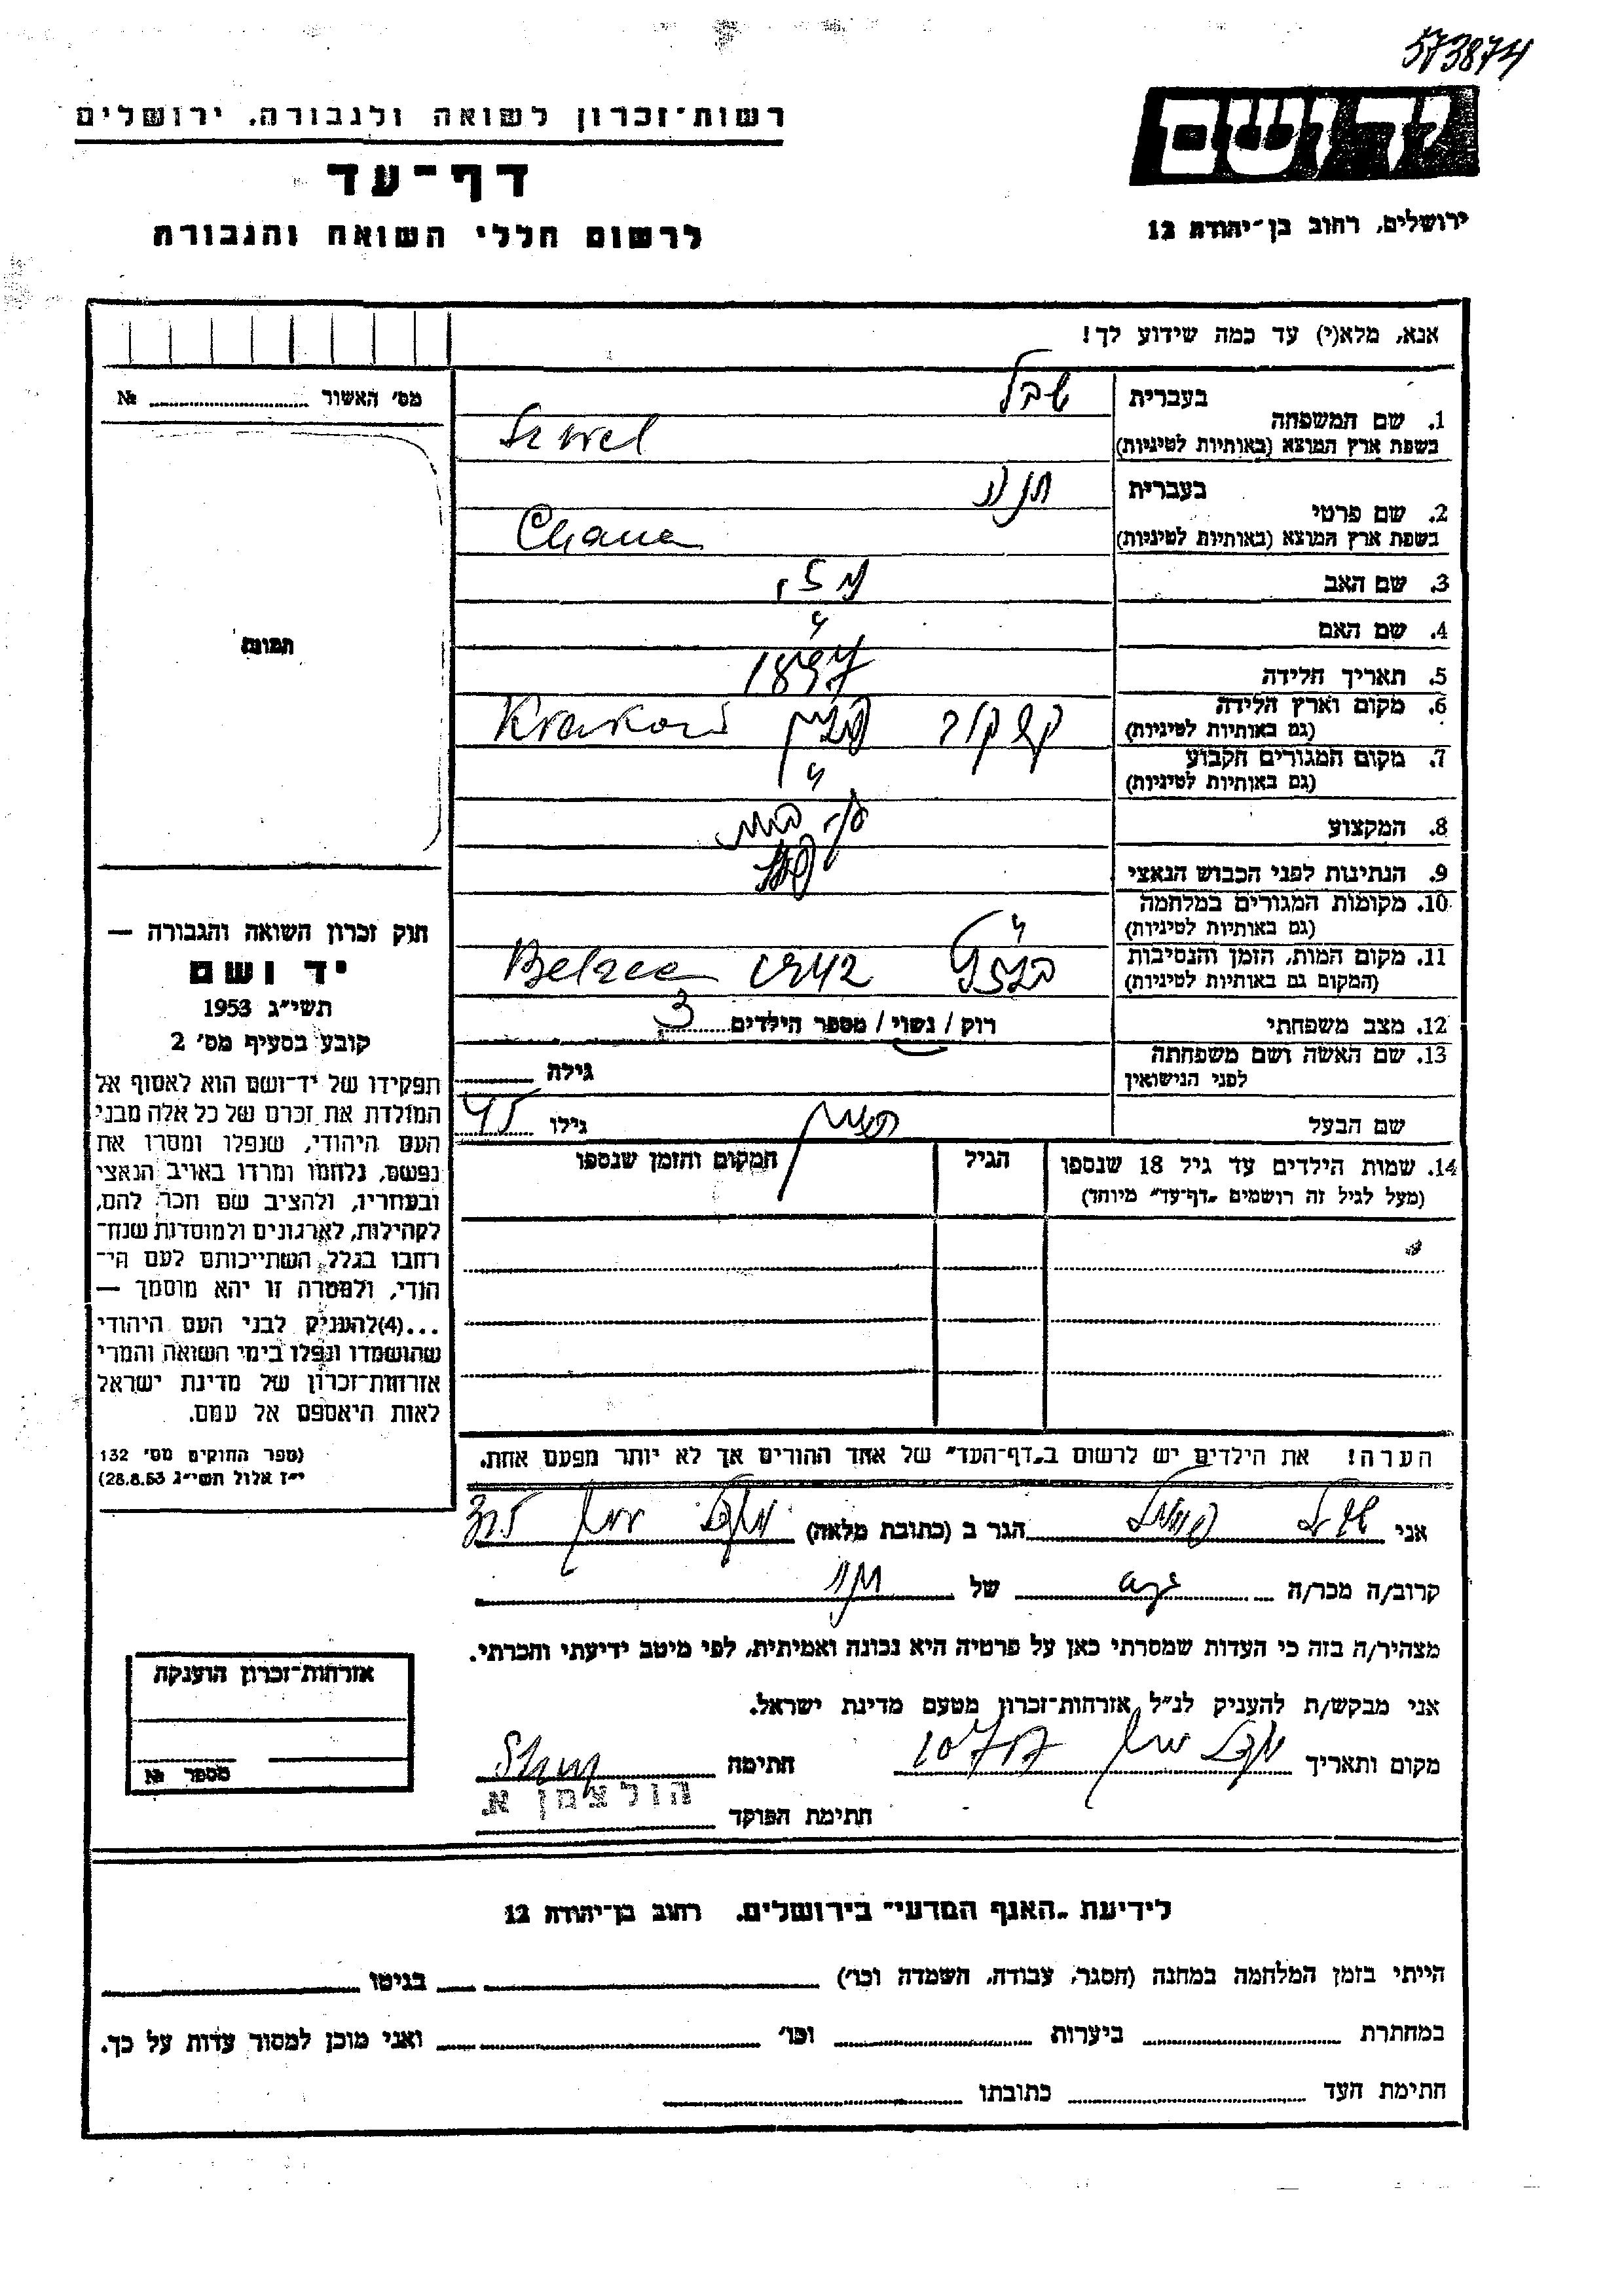 573874
רשות־זכרון לשואה ולגבורה, ירושלים
יד ושם
דף־עד
ירושלים, רחוב בן־יהודה 12
לרשום חללי השואה והגבורה
אנא, מלא(י) עד כמה שידוע לך!
מס׳ האשור № 
1. שם המשפחה
בעברית שבל
בשפת ארץ המוצא (באותיות לטיניות) Szwel
2. שם פרטי
בעברית חנה
בשפת ארץ המוצא (באותיות לטיניות) Chana
3. שם האב
4. שם האם "
5. תאריך הלידה 1897
6. מקום וארץ הלידה
(גם באותיות לטיניות) קרקוב פולין Kraków
7. מקום המגורים הקבוע
(גם באותיות לטיניות) "
8. המקצוע עק. בית
9. הנתינות לפני הכבוש הנאצי פולני
10. מקומות המגורים במלחמה
(גם באותיות לטיניות) "
11. מקום המות, הזמן והנסיבות
(המקום גם באותיות לטיניות) 1942 Belzec
12. מצב משפחתי רוק / נשוי / מספר הילדים 3
13. שם האשה ושם משפחתה
לפני הנישואין גילה
שם הבעל גילו 45
14. שמות הילדים עד גיל 18 שנספו
(מעל לגיל זה רושמים „דף־עד״ מיוחד)
הגיל
המקום והזמן שנספו
תמונה
חוק זכרון השואה והגבורה —
יד ושם
תשי״ג 1953
קובע בסעיף מס׳ 2
תפקידו של יד־ושם הוא לאסוף אל
המולדת את זכרם של כל אלה מבני
העם היהודי, שנפלו ומסרו את
נפשם, נלחמו ומרדו באויב הנאצי
ובעוזריו, ולהציב שם וזכר להם,
לקהילות, לארגונים ולמוסדות שנח־
רחבו בגלל השתייכותם לעם הי־
הודי, ולמטרה זו יהא מוסמך —
...(4)להעניק לבני העם היהודי
שהושמדו ונפלו בימי השואה והמרי
אזרחות־זכרון של מדינת ישראל
לאות היאספם אל עמם.
(ספר החוקים מס׳ 132
י״ז אלול תשי״ג 28.8.53)
הערה! את הילדים יש לרשום ב„דף־העד״ של אחד ההורים אך לא יותר מפעם אחת.
אני הגר ב (כתובת מלאה)
קרוב/ה מכר/ה של חנה
מצהיר/ה בזה כי העדות שמסרתי כאן על פרטיה היא נכונה ואמיתית, לפי מיטב ידיעתי והכרתי.
אני מבקש/ת להעניק לנ״ל אזרחות־זכרון מטעם מדינת ישראל.
מקום ותאריך חתימה
הולצמן א.
חתימת הפוקד
אזרחות־זכרון הוענקה
מספר №
לידיעת „האגף המדעי״ בירושלים. רחוב בן־יהודה 12
הייתי בזמן המלחמה במחנה (הסגר, עבודה, השמדה וכו׳) בגיטו
במחתרת ביערות וכו׳ ואני מוכן למסור עדות על כך.
חתימת העד כתובתו